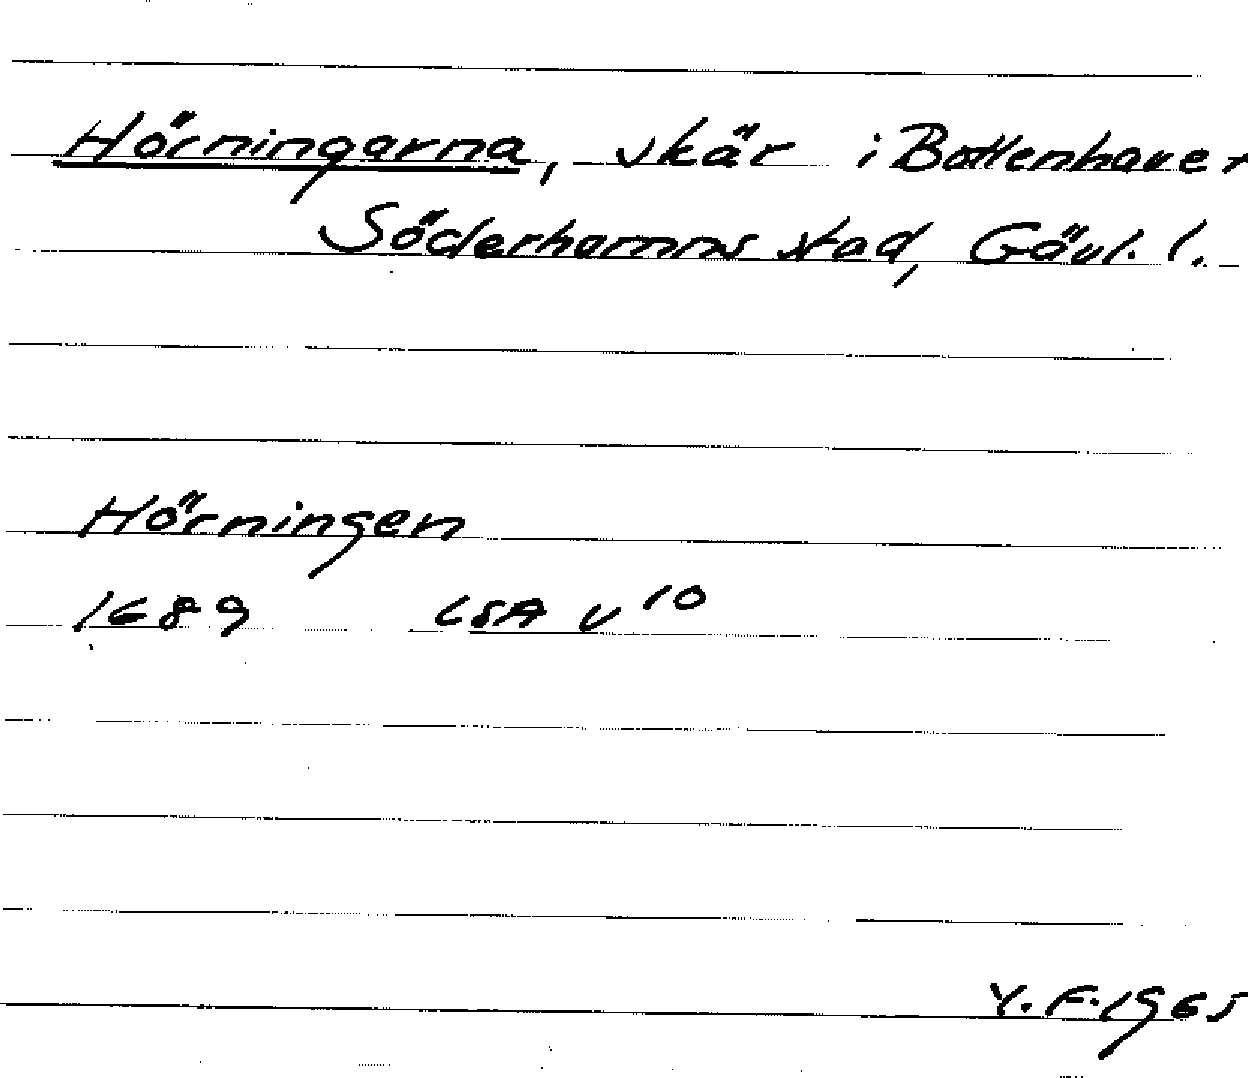 Hörningarna, skär i Bottenhavet
Söderhamns stad, Gävl. l.
Hörningen
1689 LSA U 10
Y. F. 1965